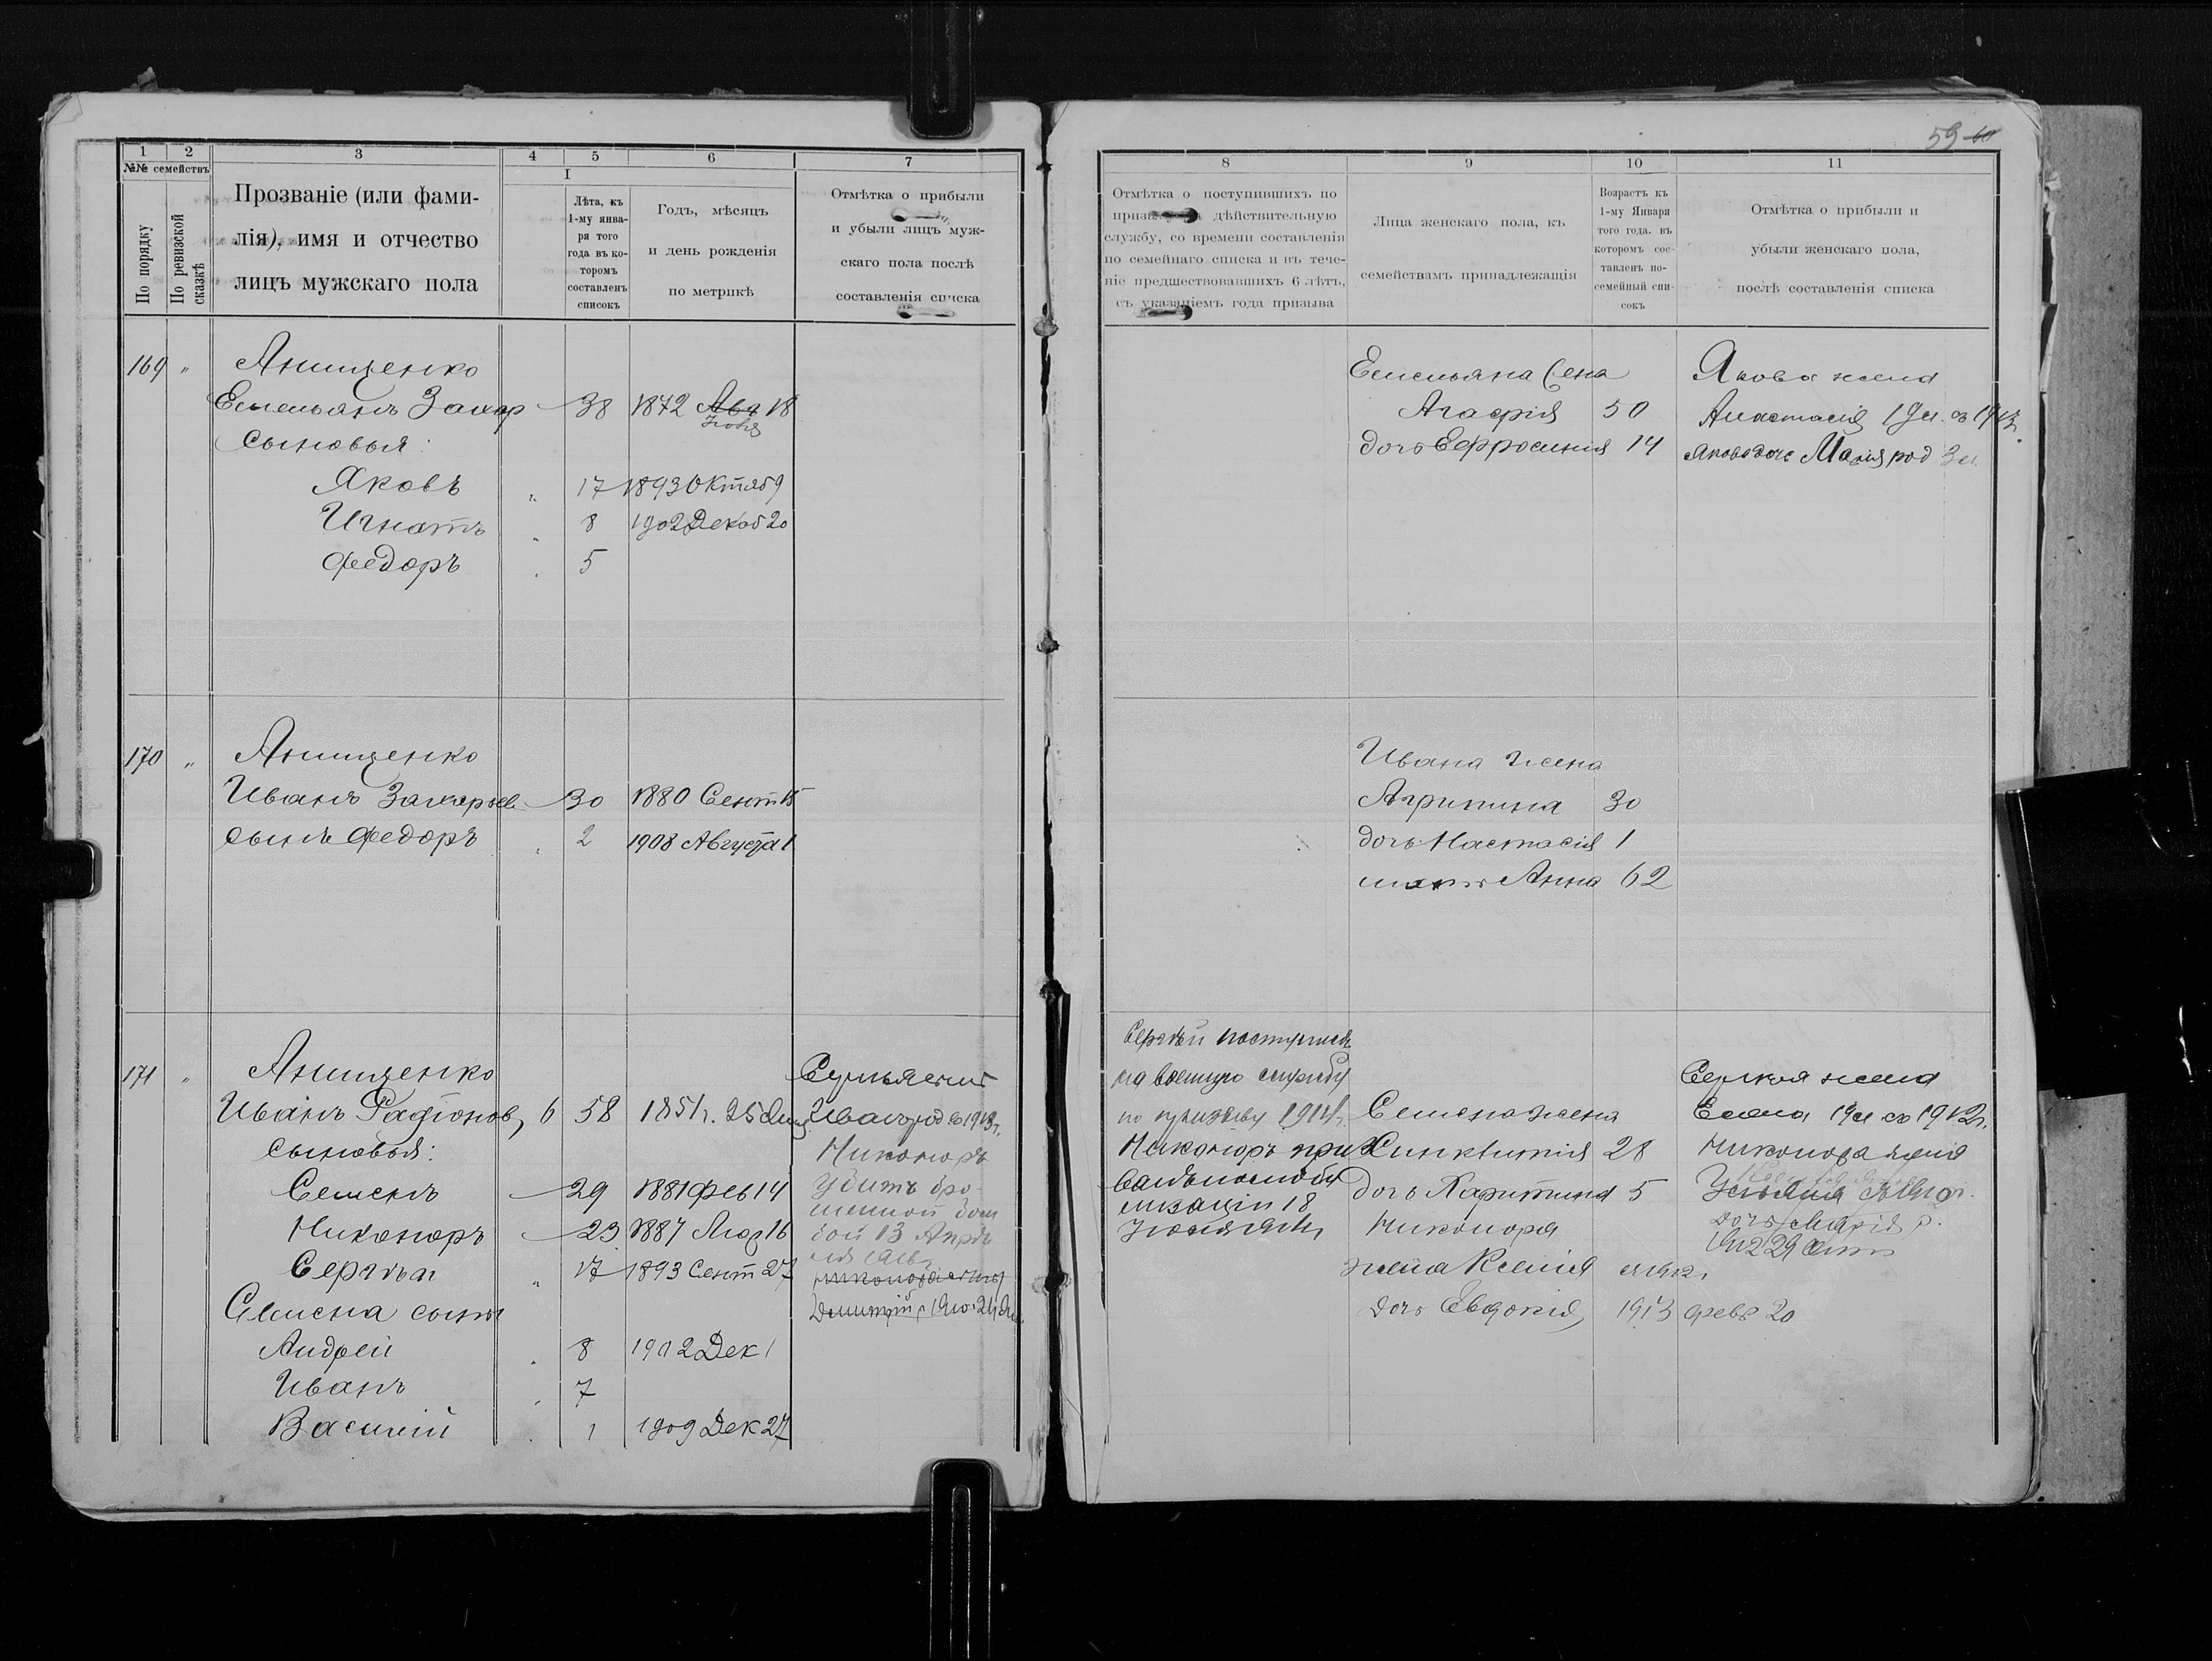 59 60
1
2
3
4
5
6
7
№№ семействъ
По порядку
По ревизской сказкѣ
Прозваніе (или фами-
лія), имя и отчество
лицъ мужскаго пола
I
Лѣта, къ
1-му янва-
ря того
года въ ко-
торомъ
составленъ
списокъ
Годъ, мѣсяцъ
и день рожденія
по метрикѣ
Отмѣтка о прибыли
и убыли лицъ муж-
скаго пола послѣ
составленія списка
169 " Анищенко
Емельянъ Захар 38 1872 Авг 18
Іюня
сыновья:
Яковъ " 17 1893 Октяб 9
Игнатъ " 8 1902 Декаб 20
Федоръ " 5
170 " Анищенко
Иванъ Захарьев 30 1880 Сент 15
сынъ Федоръ " 2 1908 Августа 1
171 " Анищенко
Иванъ Радіонов, 6 58 1851г. 25
сыновья:
Семенъ 29 1881 Фев 14
Никаноръ 23 1887 Мар 16
Сергѣй " 17 1893 Сент 27
Семена сыны
Андрей " 8 1902 Дек 1
Иванъ " 7
Василій " 1 1909 Дек 27
Иван род въ 1913г.
Никаноръ
убитъ бро-
шенной бом
бой 13 Апрѣ
ля
Никонора сынъ
Дмитрій
8
9
10
11
Отмѣтка о поступившихъ по
дѣйствительную
службу, со времени составленія
по семейнаго списка и въ тече-
ніе предшествовавшихъ 6 лѣтъ,
съ указаніемъ года призыва
Лица женскаго пола, къ
семействамъ принадлежащія
Возрастъ къ
1-му Января
того года. въ
которомъ сос-
тавленъ по-
семейный спи-
сокъ
Отмѣтка о прибыли и
убыли женскаго пола,
послѣ составленія списка
Емельяна жена
Агафія 50
дочь Ефросинія 14
Якова жена
Анастасія 19 л. съ 1913
Якова дочь Марія род
Ивана жена
Агрипина 30
дочь Настасія 1
мать Анна 62
Сергѣй поступилъ
на военную службу
по призыву 1914г.
Никаноръ приз
18
Семена жена
Синклитія 28
дочь Харитина 5
Никонора
жена Ксенія
дочь Евдокія, 1913 февр 20
Сергѣя жена
Елена 19 л съ 1912г.
Никонора жена
дочь Марія р.
1912 29